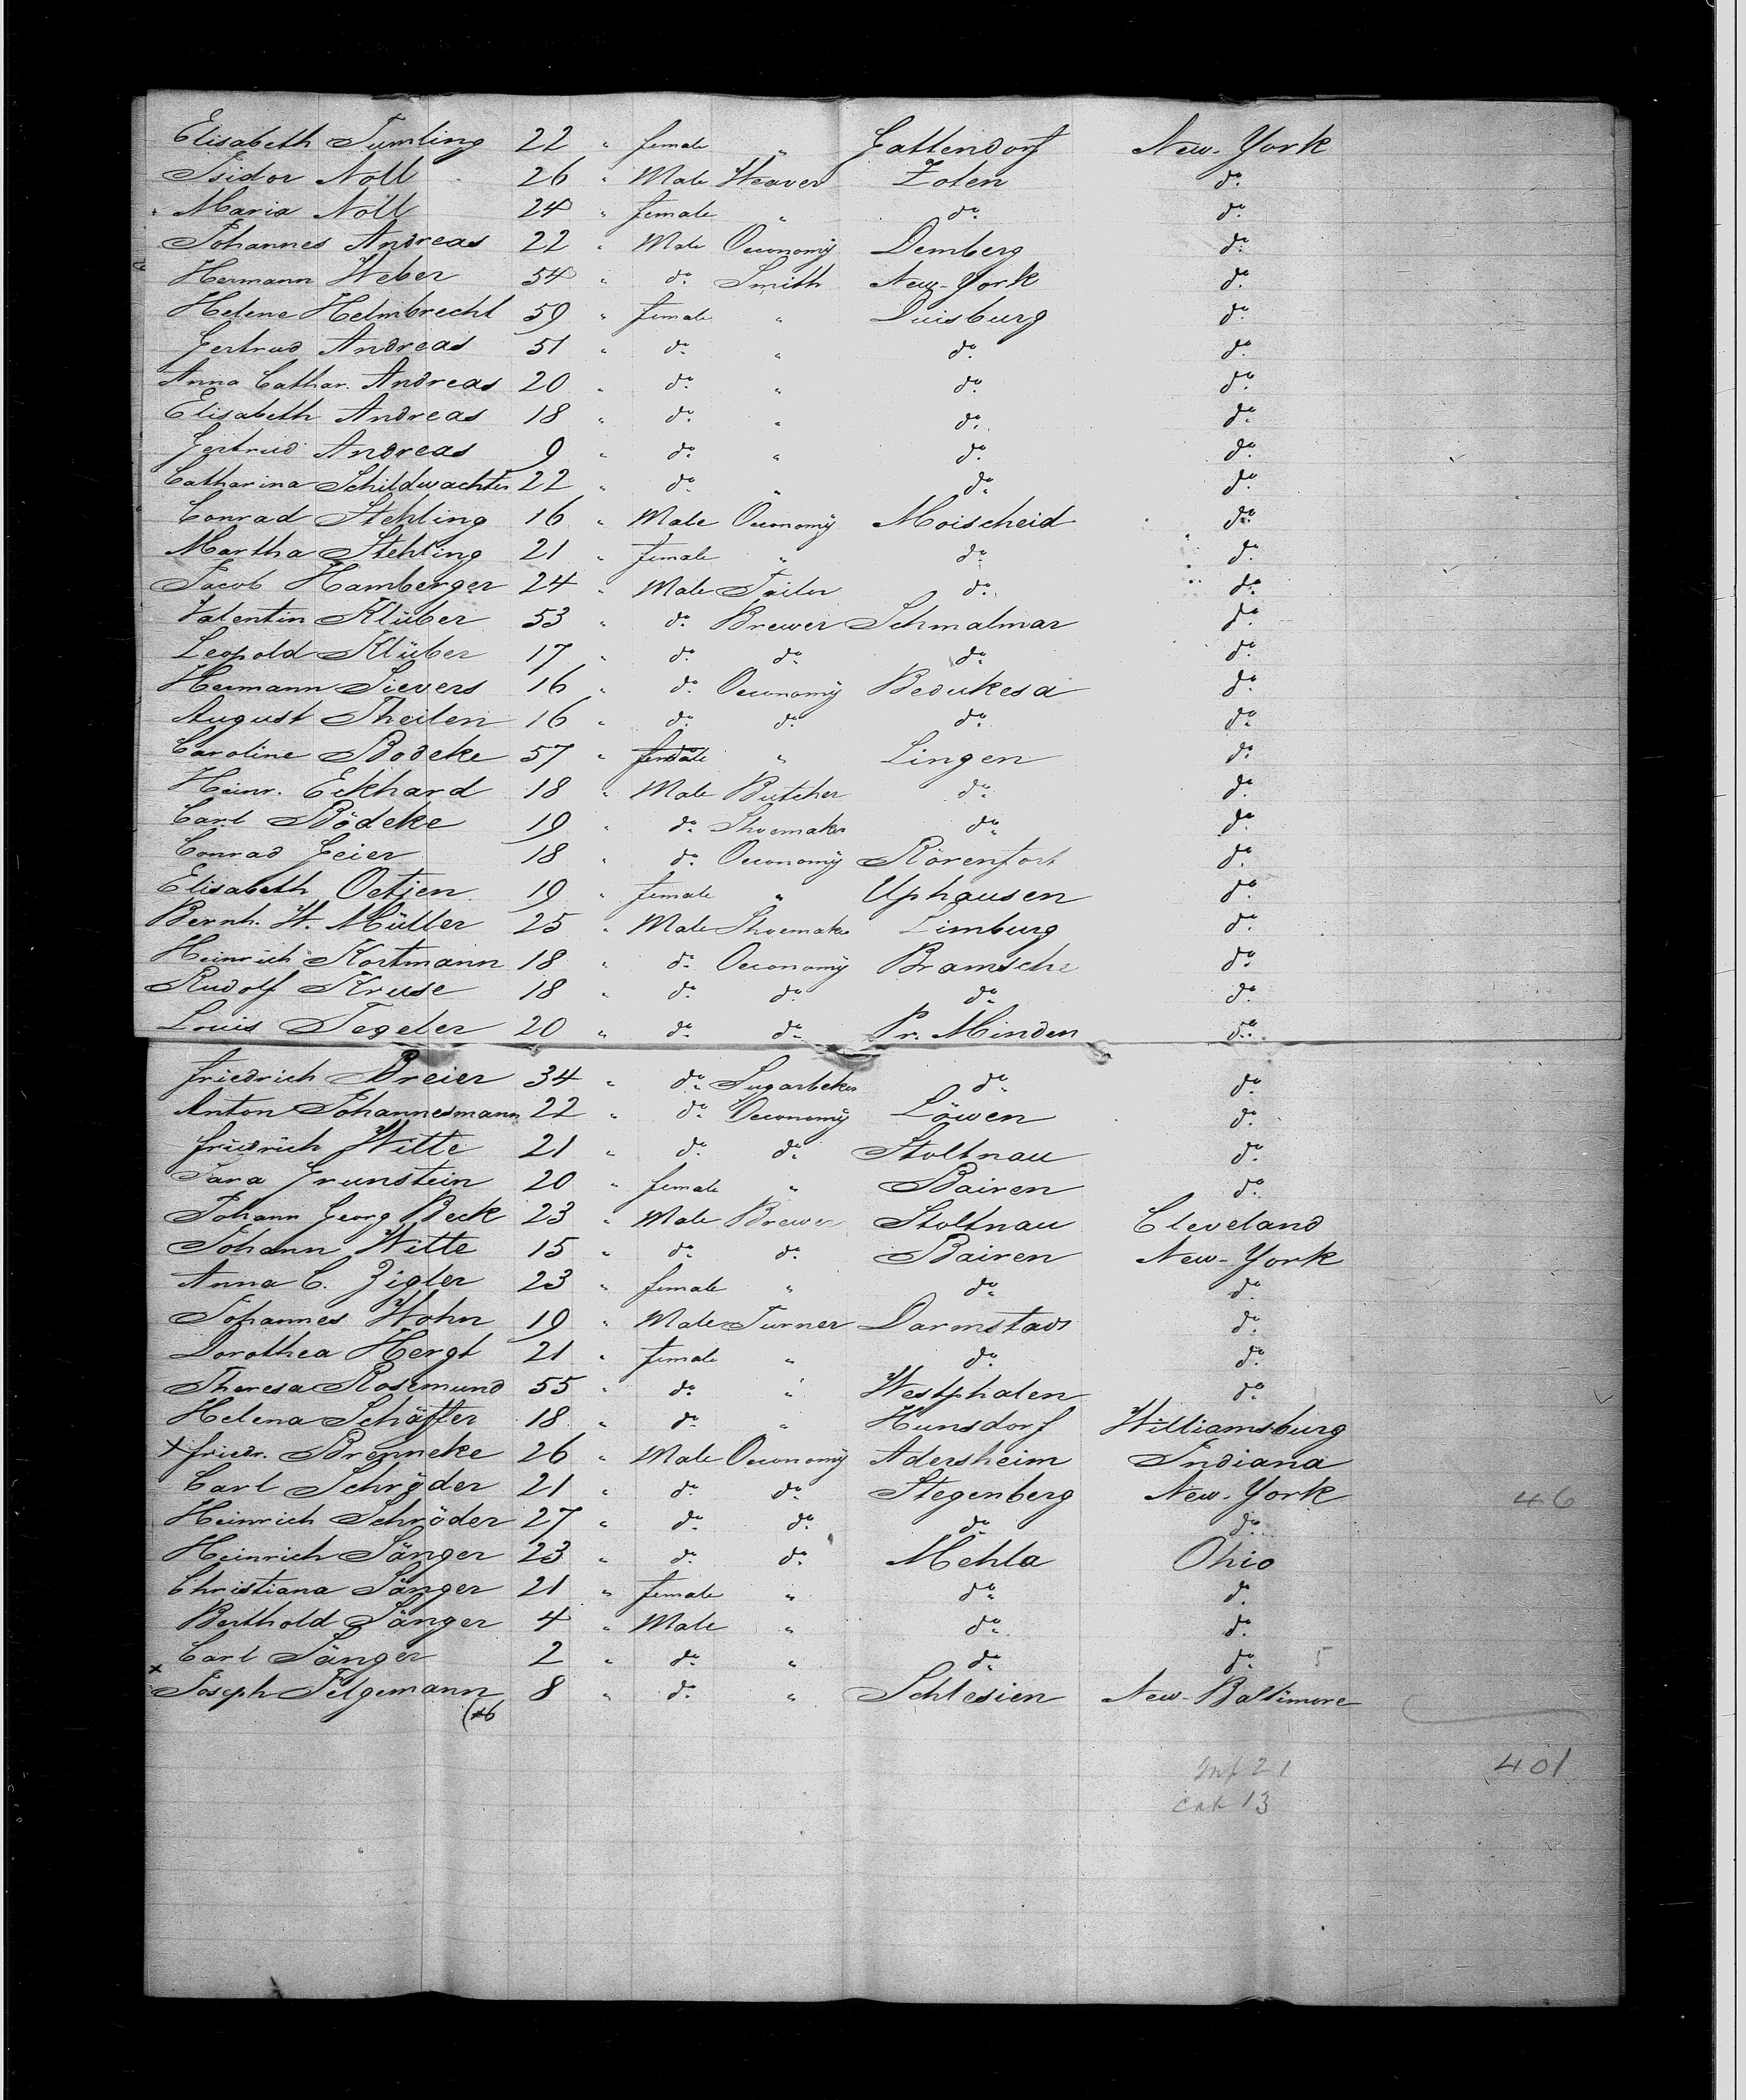 Elisabeth Tumling 22 " female " Gattendorf New-York
Isidor Noll 26 " Male Weaver Zoten do.
Maria Noll 24 " female " do. do.
Johannes Andreas 22 " Male Oeconomÿ Demberg do.
Hermann Weber 54 " do. Smith New-York do.
Helene Helmbrecht 59 " female " Duisburg do.
Gertrud Andreas 51 " do. " do. do.
Anna Cathar. Andreas 20 " do. " do. do.
Elisabeth Andreas 18 " do. " do. do.
Gertrud Andreas 9 " do. " do. do.
Catharina Schildwachter 22 " do. " do. do.
Conrad Stehling 16 " Male Oeconomÿ Moischeid do.
Martha Stehling 21 " female " do. do.
Jacob Hamberger 24 " Male Tailor do. do.
Valentin Klüber 53 " do. Brewer Schmalmar do.
Leopold Klüber 17 " do. do. do. do.
Hermann Sievers 16 " do. Oeconomÿ Bedukesa do.
August Theilen 16 " do. do. do. do.
Caroline Bödeke 57 " female " Lingen do.
Heinr. Eckhard 18 " Male Butcher do. do.
Carl Bödeke 19 " do. Shoemaker do. do.
Conrad Geier 18 " do. Oeconomÿ Rörenfort do.
Elisabeth Oetjen 19 " female " Uphausen do.
Bernh. W. Müller 25 " Male Shoemaker Limburg do.
Heinrich Kortmann 18 " do. Oeconomÿ Bramsche do.
Rudolf Kruse 18 " do. do. do. do.
Louis Tegeler 20 " do. do. Pr. Minden do.
Friedrich Breier 34 " do. Sugarbeker do. do.
Anton Johannesmann 22 " do. Oeconomÿ Löwen do.
Friedrich Witte 21 " do. do. Stoltnau do.
Sara Grunstein 20 " female " Bairen do.
Johann Georg Beck 23 " Male Brewer Stoltnau Cleveland
Johann Witte 15 " do. do. Bairen New-York
Anna C. Zigler 23 " female " do. do.
Johannes Hohn 19 " Male Turner Darmstadt do.
Dorothea Hergt 21 " female " do. do.
Theresa Rosemund 55 " do. " Westphalen do.
Helena Schäffer 18 " do. " Hunsdorf Williamsburg
x Friedr. Brenneke 26 " Male Oeconomÿ Adersheim Indiana
Carl Schröder 21 " do. do. Stegenberg New-York 46
Heinrich Schröder 27 " do. do. do. do.
Heinrich Sänger 23 " do. do. Mehla Ohio
Christiana Sänger 21 " female " do. do.
Berthold Sänger 4 " Male " do. do.
Carl Sänger 2 " do. " do. do. 5
x Joseph Felgemann 8 " do. " Schlesien New-Baltimore
Inf 21 401
cab 13